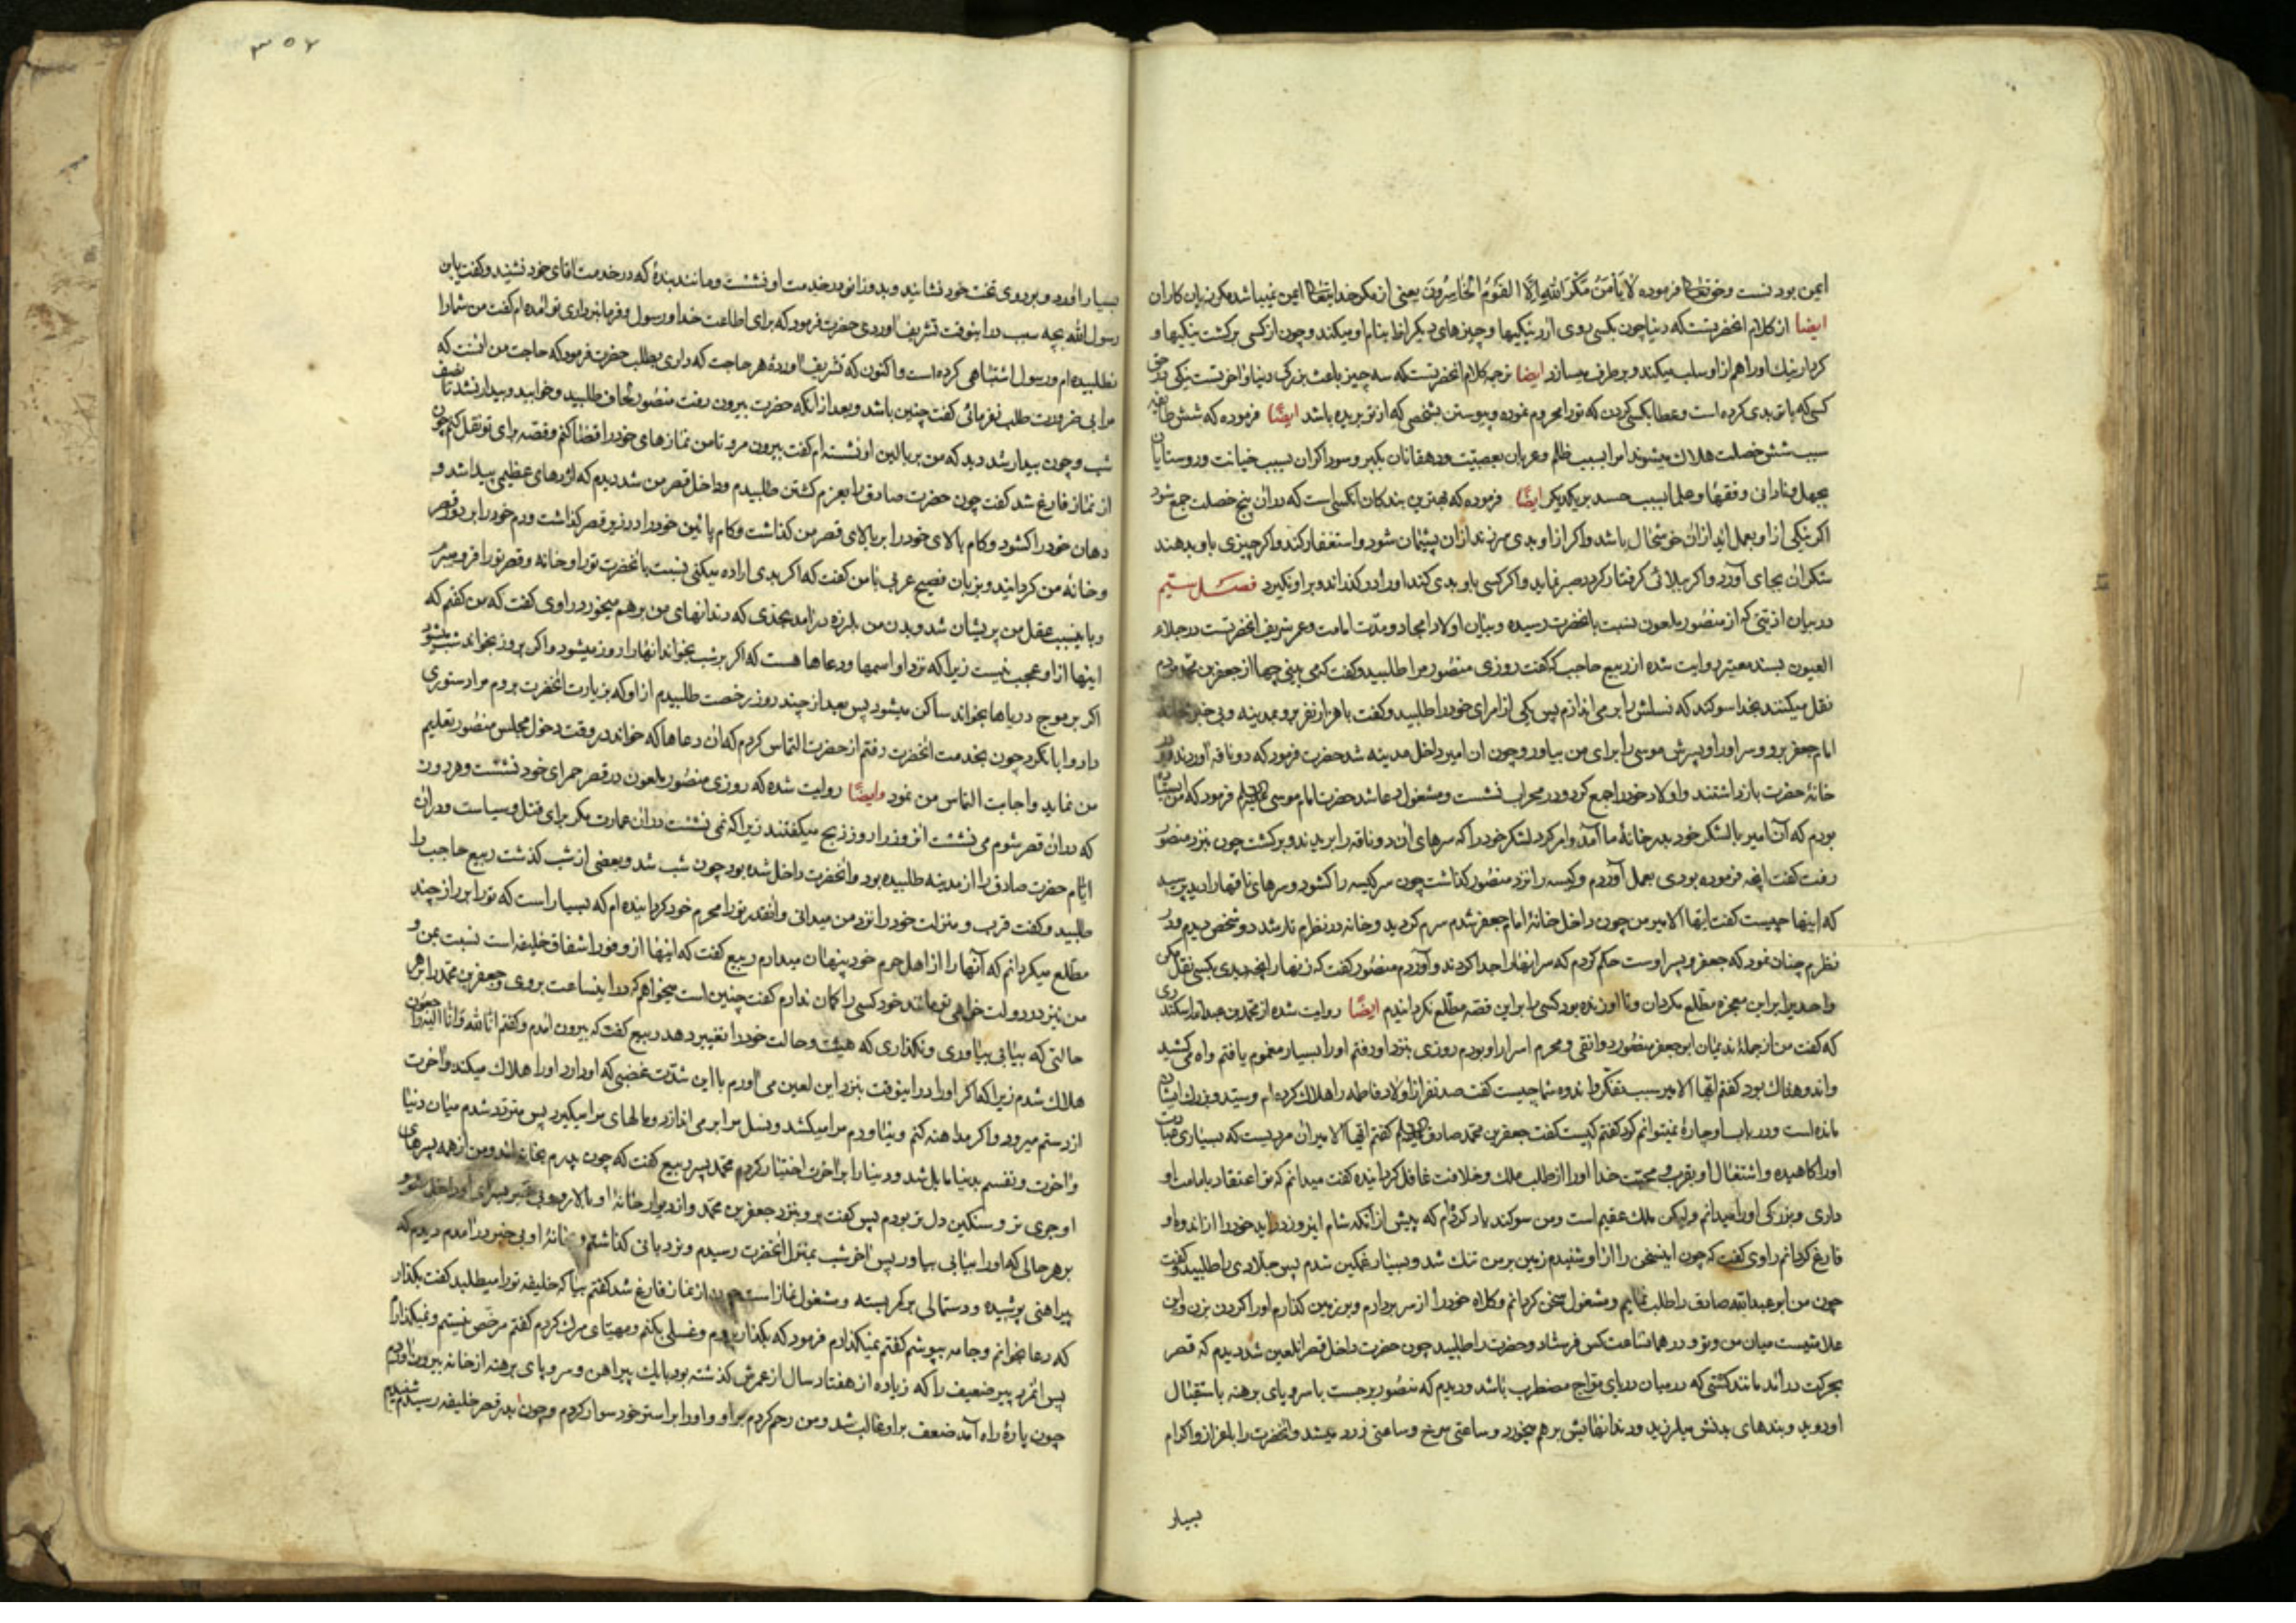 ایمن بودنست و حقتعالی فرموده لَا یَأمَنُ مَکْرَ اللهِ اِلَّا القَومُ الخَاسِرُونَ یعنی از مکر خدایتعالی ایمن نمیباشد مکر زیان کاران
ایضا از کلام انحضرتست که دنیا چون بکسی روی ارد نیکیها و چیزهای دیکرانرا بنام او میکند و چون از کسی برکشت نیکیها و
کردار نیک او را هم از او سلب میکند و برطرف میسازد ایضا ترجمه کلام انحضرتست که سه چیز باعث بزرکی دنیا و اخرتست نیکی در حق
کسی که با تو بدی کرده است و عطا بکسی کردن که تو را محروم نموده و پیوستن بشخصی که از تو بریده باشد ایضًا فرموده که شش طایفه
سبب شش خصلت هلاک میشوند امرا بسبب ظلم و عربان بعصبیّت و دهقانان بکبر و سوداکران بسبب خیانت و روستایان
بجهل و نادانی و فقها و علما بسبب حسد بر یکدیکر ایضًا فرموده که بهترین بندکان انکسی است که در ان پنج خصلت جمع شود
اکر نیکی از او بعمل اید از ان خوشحال باشد و اکر از او بدی سر زند از ان پشیمان شود و استغفار کند و اکر چیزی باو بدهند
شکر ان بجای آورد و اکر ببلائی کرفتار کردد صبر نماید و اکر کسی باو بدی کند او را درکذراند و بر او نکیرد فصل سیّم
در بیان اذیتی که از منصور ملعون نسبت بانحضرت رسیده و بیان اولاد امجاد و مدّت امامت و عمر شریف انحضرتست در جلاء
العیون بسند معتبر روایت شده از ربیع حاجب که کفت روزی منصور مرا طلبید و کفت که می بینی چها از جعفر بن محمّد مردم
نقل میکنند بخدا سوکند که نسلش را بر می اندازم پس یکی از امرای خود را طلبید و کفت با هزار نفر برو بمدینه و بی خبر بخانه
امام جعفر برو و سر او را و پسرش موسی را برای من بیاور و چون ان امیر داخل مدینه شد حضرت فرمود که دو ناقه اوردند و در
خانهٔ حضرت بازداشتند و اولاد خود را جمع کرد و در محراب نشست و مشغول دعا شد حضرت امام موسی فرمود که من ایستاده
بودم که آن امیر با لشکر خود بدر خانهٔ ما آمد و امر کرد لشکر خود را که سرهای ان دو ناقه را بریدند و برکشت چون بنزد منصور
رفت کفت انچه فرموده بودی بعمل آوردم و کیسه را نزد منصور کذاشت چون سر کیسه را کشود و سرهای ناقها را دید پرسید
که اینها چیست کفت ایّها الامیر من چون داخل خانهٔ امام جعفر شدم سرم کردید و خانه در نظرم تار شد دو شخص دیدم و در
نظرم چنان نمود که جعفر و پسر اوست حکم کردم که سر انها را جدا کردند و آوردم منصور کفت که زنهار انچه دیدی بکسی نقل مکن
و احدیرا بر این معجزه مطّلع مکردان و تا او زنده بود کسی را بر این قصه مطّلع نکردانیدم ایضًا روایت شده از محمّد بن عبدالله اسکندری
که کفت من از جملهٔ ندیمان ابو جعفر منصور دوانقی و محرم اسرار او بودم روزی بنزد او رفتم او را بسیار مغموم یافتم و اه می کشید
و اندوهناک بود کفتم ایّها الامیر سبب تفکّر و اندوه شما چیست کفت صد نفر از اولاد فاطمه را هلاک کرده ام و سیّد و بزرک ایشان
مانده است و در باب او چارهٔ نمیتوانم کرد کفتم کیست کفت جعفر بن محمّد صادق کفتم ایّها الامیر ان مردیست که بسیاری عبادت
او را کاهیده و اشتغال او بقرب و محبّت خدا او را از طلب ملک و خلافت غافل کردانیده کفت میدانم که تو اعتقاد بامامت او
داری و بزرکی او را میدانم ولیکن ملک عقیم است و من سوکند یاد کرده‌ام که پیش از آنکه شام این روز دراید خود را از اندوه او
فارغ کردانم راوی کفت که چون اینسخن را از او شنیدم زمین بر من تنک شد و بسیار غمکین شدم پس جلادی را طلبید و کفت
چون من ابو عبدالله صادق را طلب نمایم و مشغول سخن کردانم و کلاه خود را از سر بردارم و بر زمین کذارم او را کردن بزن و این
علامتیست میان من و تو و در همانساعت کس فرستاد و حضرت را طلبید چون حضرت داخل قصر انلعین شد دیدم که قصر
بحرکت درآمد مانند کشتی که در میان دریای موّاج مضطرب باشد و دیدم که منصور برجست با سر و پای برهنه باستقبال
او دوید و بندهای بدنش میلرزید و دندانهایش بر هم میخورد و ساعتی سرخ و ساعتی زرد میشد و انحضرت را باعزاز و اکرام
بسیار
۳۵۲
بسیار اورد و بر روی تخت خود نشانید و بدو زانو در خدمت او نشست و مانند بندهٔ که در خدمت اقای خود نشیند و کفت یابن
رسول الله بچه سبب در اینوقت تشریف اوردی حضرت فرمود که برای اطاعت خدا و رسول و فرمانبرداری تو امده ام کفت من شما را
نطلبیده ام و رسول اشتباهی کرده است و اکنون که تشریف اوردهٔ هر حاجت که داری بطلب حضرت فرمود که حاجت من انست که
مرا بی ضرورت طلب نفرمائی کفت چنین باشد و بعد از انکه حضرت بیرون رفت منصور لحاف طلبید و خوابید و بیدار نشد تا نصف
شب و چون بیدار شد دید که من بر بالین او نشسته ام کفت بیرون مرو تا من نمازهای خود را قضا کنم و قصّه برای تو نقل کنم چون
از نماز فارغ شد کفت چون حضرت صادق را بعزم کشتن طلبیدم و داخل قصر من شد دیدم که اژدهای عظیمی پیدا شد و
دهان خود را کشود و کام بالای خود را بر بالای قصر من کذاشت و کام پائین خود را در زیر قصر کذاشت و دم خود را بر دور قصر
و خانهٔ من کردانید و بزبان فصیح عربی با من کفت که اکر بدی اراده میکنی نسبت بانحضرت تو را و خانه و قصر تو را فرو میبرم
و باینسبب عقل من پریشان شد و بدن من بلرزه درامد بحدّی که دندانهای من بر هم میخورد راوی کفت که من کفتم که
اینها از او عجب نیست زیرا که نزد او اسمها و دعاها هست که اکر بر شب بخواند انها را روز میشود و اکر بروز بخواند شب میشود
اکر بر موج دریاها بخواند ساکن میشود پس بعد از چند روز رخصت طلبیدم از او که بزیارت انحضرت بروم مرا دستوری
داد و ابا نکرد چون بخدمت انحضرت رفتم از حضرت التماس کردم که ان دعاها که خواند در وقت دخول مجلس منصور تعلیم
من نماید و اجابت التماس من نمود و ایضًا روایت شده که روزی منصور ملعون در قصر حمرای خود نشست و هر روز
که در ان قصر شوم می نشست ان روز را روز ذبح میکفتند زیرا که نمی نشست در ان عمارت مکر برای قتل و سیاست و در ان
ایّام حضرت صادق را از مدینه طلبیده بود و انحضرت داخل شده بود چون شب شد و بعضی از شب کذشت ربیع حاجب را
طلبید و کفت قرب و منزلت خود را نزد من میدانی و انقدر تو را محرم خود کردانیده ام که بسیار است که تو را بر رازی چند
مطّلع میکردانم که آنها را از اهل حرم خود پنهان میدارم ربیع کفت که اینها از وفور اشفاق خلیفه است نسبت بمن و
من نیز در دولت خواهی تو مانند خود کسی را کمان ندارم کفت چنین است میخواهم که در اینساعت بروی و جعفر بن محمّد را بر هر
حالتی که بیابی بیاوری و نکذاری که هیئت و حالت خود را تغییر دهد ربیع کفت که بیرون امدم و کفتم انّا لله و انّا الیه راجعون
هلاک شدم زیرا که اکر او را در اینوقت بنزد این لعین می اورم با این شدّت غضبی که او دارد او را هلاک میکند و اخرت
از دستم میرود و اکر مداهنه کنم و نیاورم مرا میکشد و نسل مرا بر می اندازد و مالهای مرا میکیرد پس متردّد شدم میان دنیا
و اخرت و نفسم بدنیا مایل شد و دنیا را بر اخرت اختیار کردم محمّد پسر ربیع کفت که چون پدرم بخانه امد و من از همه پسرهای
او جری تر و سنکین دل تر بودم پس کفت برو بنزد جعفر بن محمّد و از دیوار خانهٔ او بالا رو و بی خبر بسرای او داخل شو و
بر هر حالی که او را بیابی بیاور پس اخر شب بمنزل انحضرت رسیدم و نردبانی کذاشتم و بخانهٔ او بی خبر درامدم دیدم که
پیراهنی پوشیده و دستمالی بر کمر بسته و مشغول نماز است چون از نماز فارغ شد کفتم بیا که خلیفه تو را میطلبد کفت بکذار
که دعا بخوانم و جامه بپوشم کفتم نمیکذارم فرمود که بکذار بروم و غسلی بکنم و مهیّای مرک کردم کفتم مرخّص نیستم و نمیکذارم
پس انمرد پیر ضعیف را که زیاده از هفتاد سال از عمرش کذشته بود با یک پیراهن و سر و پای برهنه از خانه بیرون اوردم
چون پارهٔ راه آمد ضعف بر او غالب شد و من رحم کردم بر او و او را بر استر خود سوار کردم و چون بدر قصر خلیفه رسیدم شنیدم